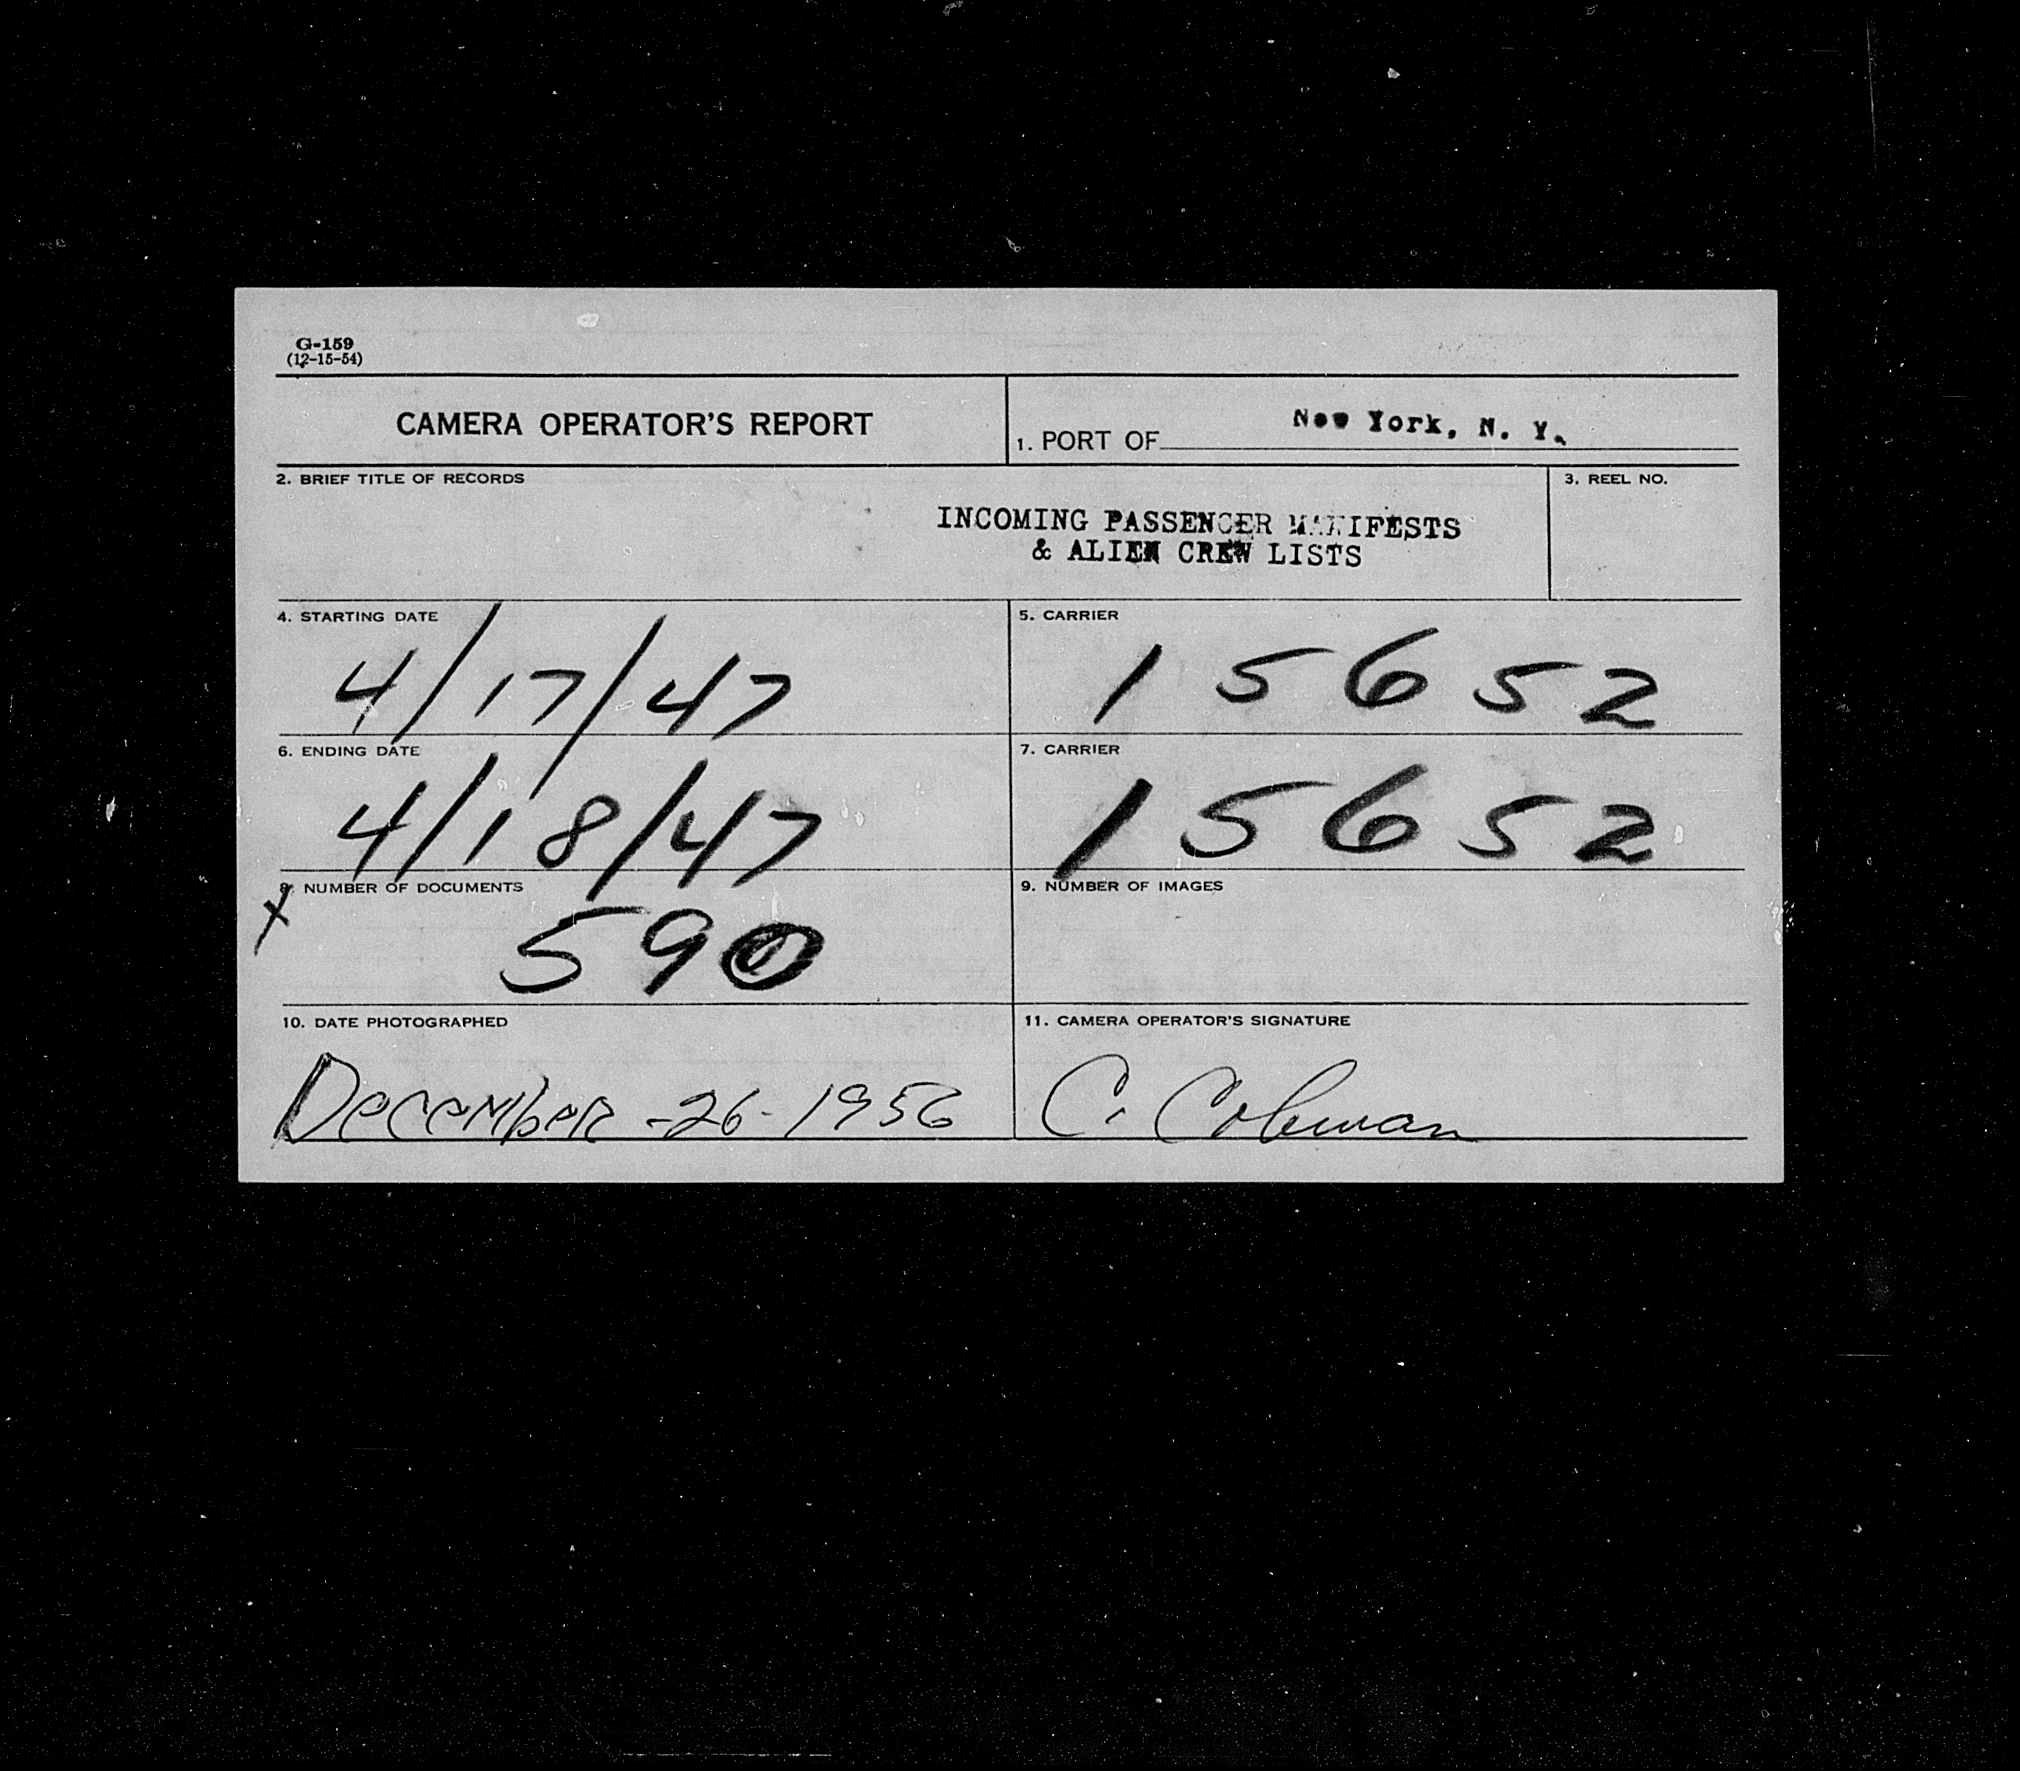 G-159
(12-15-54)
CAMERA OPERATOR'S REPORT
1. PORT OF New York, N. Y.
2. BRIEF TITLE OF RECORDS
INCOMING PASSENGER MANIFESTS
& ALIEN CREW LISTS
3. REEL NO.
4. STARTING DATE
4/17/47
5. CARRIER
15652
6. ENDING DATE
4/18/47
7. CARRIER
15652
8. NUMBER OF DOCUMENTS
x
590
9. NUMBER OF IMAGES
10. DATE PHOTOGRAPHED
December-26-1956
11. CAMERA OPERATOR'S SIGNATURE
C. Coleman